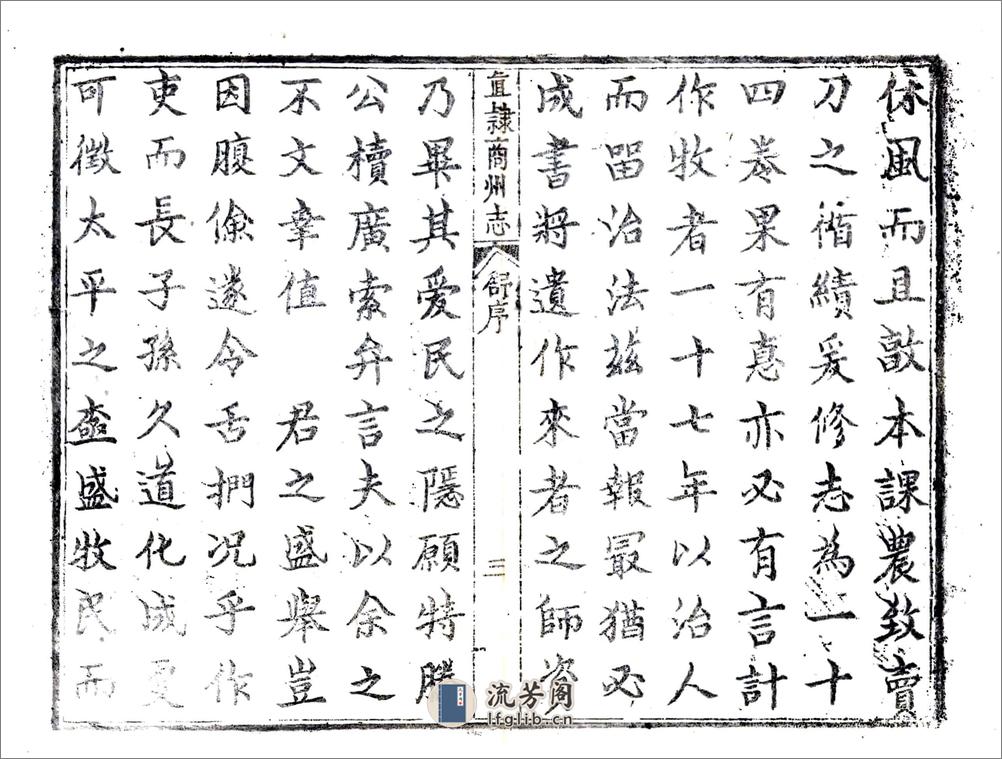 休風而且敦本課農致賣
刀之循績爰修志為一十
四卷果有惪亦必有言計
作牧者一十七年以治人
而畱治法茲當報最猶必
成書將遺作來者之師資
直隸商州志 舒序 三
乃畢其爱民之隱願特勝
公櫝廣索弁言夫以余之
不文幸值 君之盛舉豈
因腹儉遂令舌捫况乎作
吏而長子孫久道化成更
可徵太平之盛牧民而
流芳阁
lfglib.cn